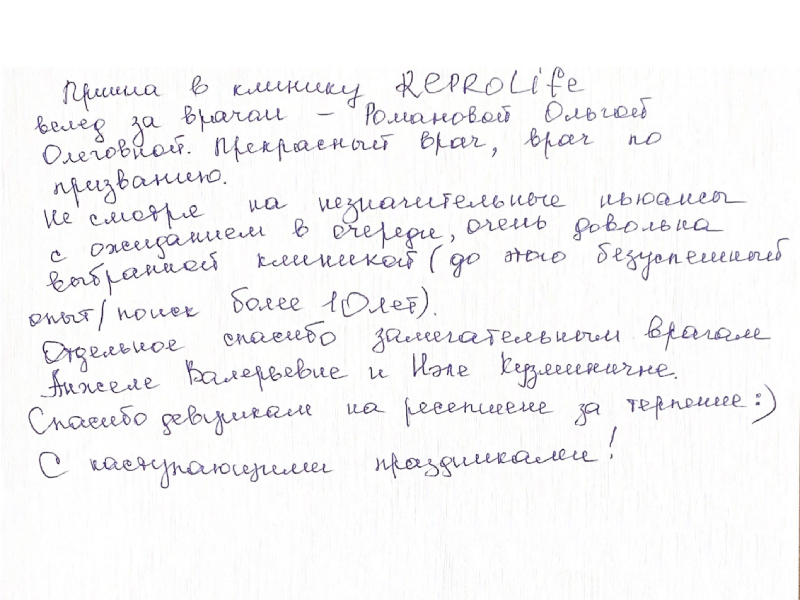 Пришла в клинику REPROLife
вслед за врачом – Романовой Ольгой
Олеговной. Прекрасный врач, врач по
призванию.
Не смотря на незначительные ньюансы
с ожиданием в очереди, очень довольна
выбранной клиникой (до этого безуспешный
опыт/поиск более 10лет).
Отдельное спасибо замечательным врачам
Анжеле Валерьевне и Нэле Кузьминичне.
Спасибо девушкам на ресепшене за терпение:)
С наступающими праздниками!